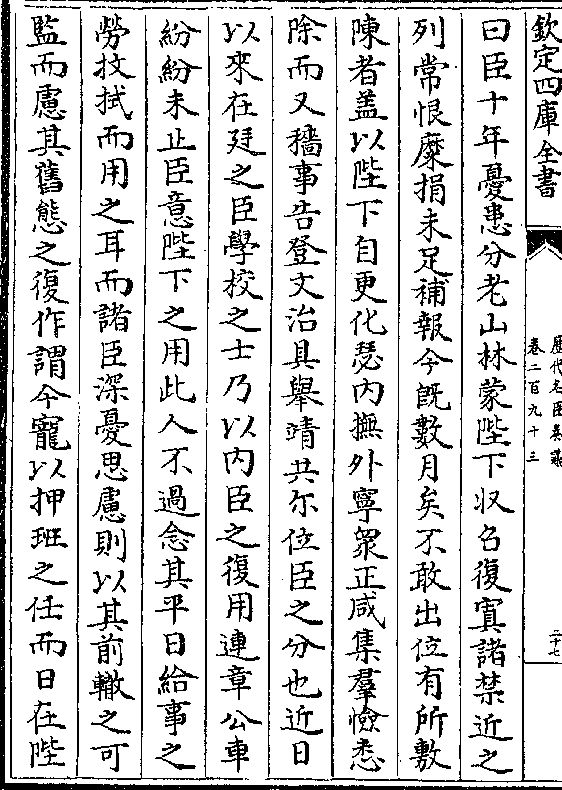 欽定四庫全書
歷代名臣奏議
卷二百九十三
二十七
曰臣十年憂患分老山林蒙陛下収召復寘諸禁近之
列常恨糜捐未足補報今既數月矣不敢出位有所敷
陳者盖以陛下自更化瑟内撫外寧衆正咸集羣憸悉
除而又穡事告登文治具舉靖共尓位臣之分也近日
以來在廷之臣學校之士乃以内臣之復用連章公車
紛紛未止臣意陛下之用此人不過念其平日給事之
勞抆拭而用之耳而諸臣深憂思慮則以其前轍之可
監而慮其舊態之復作謂今寵以押班之任而日在陛